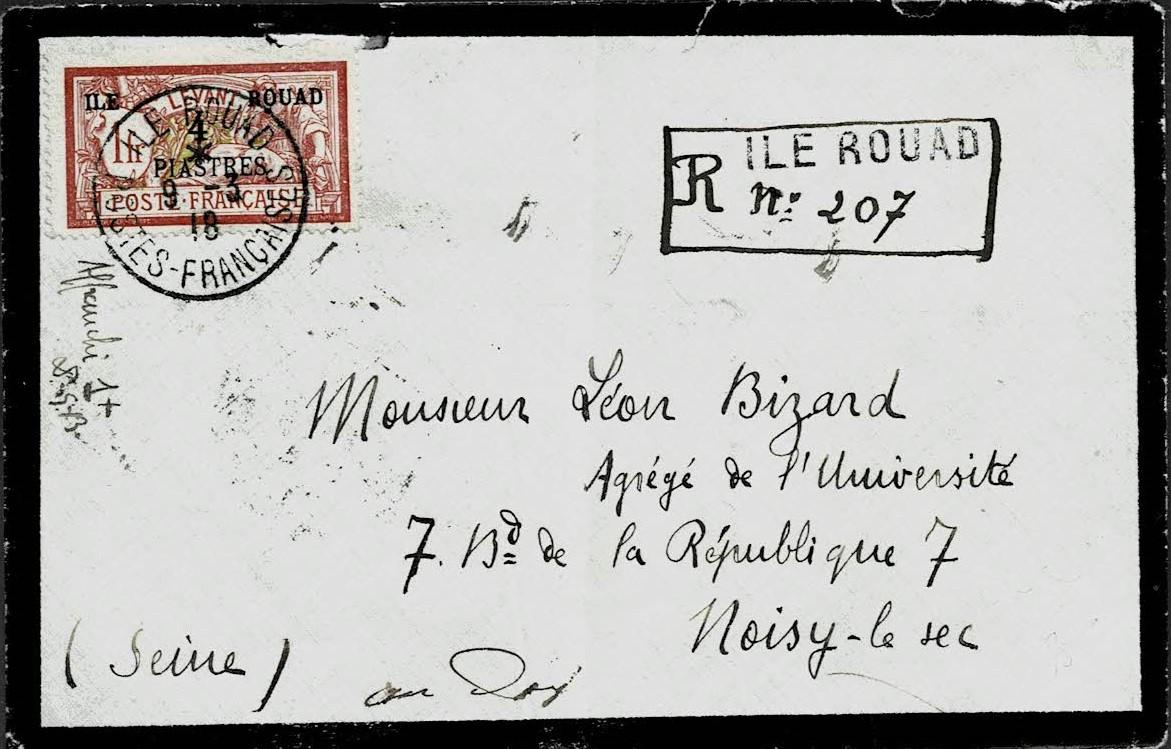 ILE ROUAD
LEVANT
4
1fr
PIASTRES
POSTE FRANÇAISE
ILE ROUAD
9 - 3
18
POSTES-FRANÇAISES
ILE ROUAD
R nº 207
Monsieur Léon Bizard
Agrégé de l'Université
7. Bd de la République 7
Noisy-le sec
(Seine)